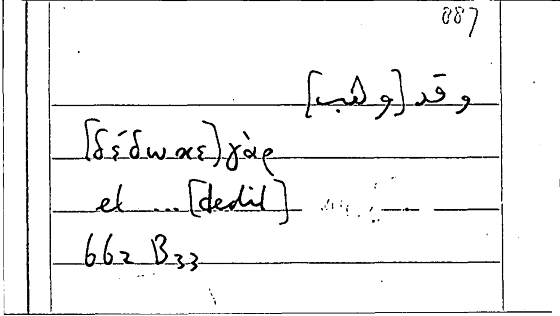 887
وقد [وهب]
[δέδωκε] γὰρ
et ... [dedit]
662 B33